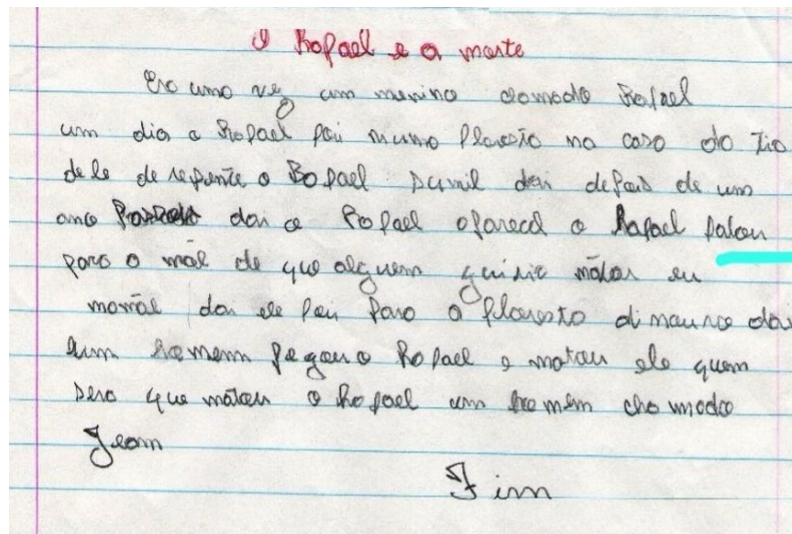 O Rofael e a morte
Era uma vez um menino comodo Rofael
um dia o Rofael foi numa floresta na casa do tio
dele de repente o Rofael sumil dai defois de um
ano Passado dai o Rofael ofareceu o Rafael falou
para o mãe de que alguem quiria mãtar eu
mamãe dai ele foi para o floresta di nauvo dai
um homem pegou o Rofael e matou ele quem
sera que matou o Rofael um homem chomodo
Jeam
Fim